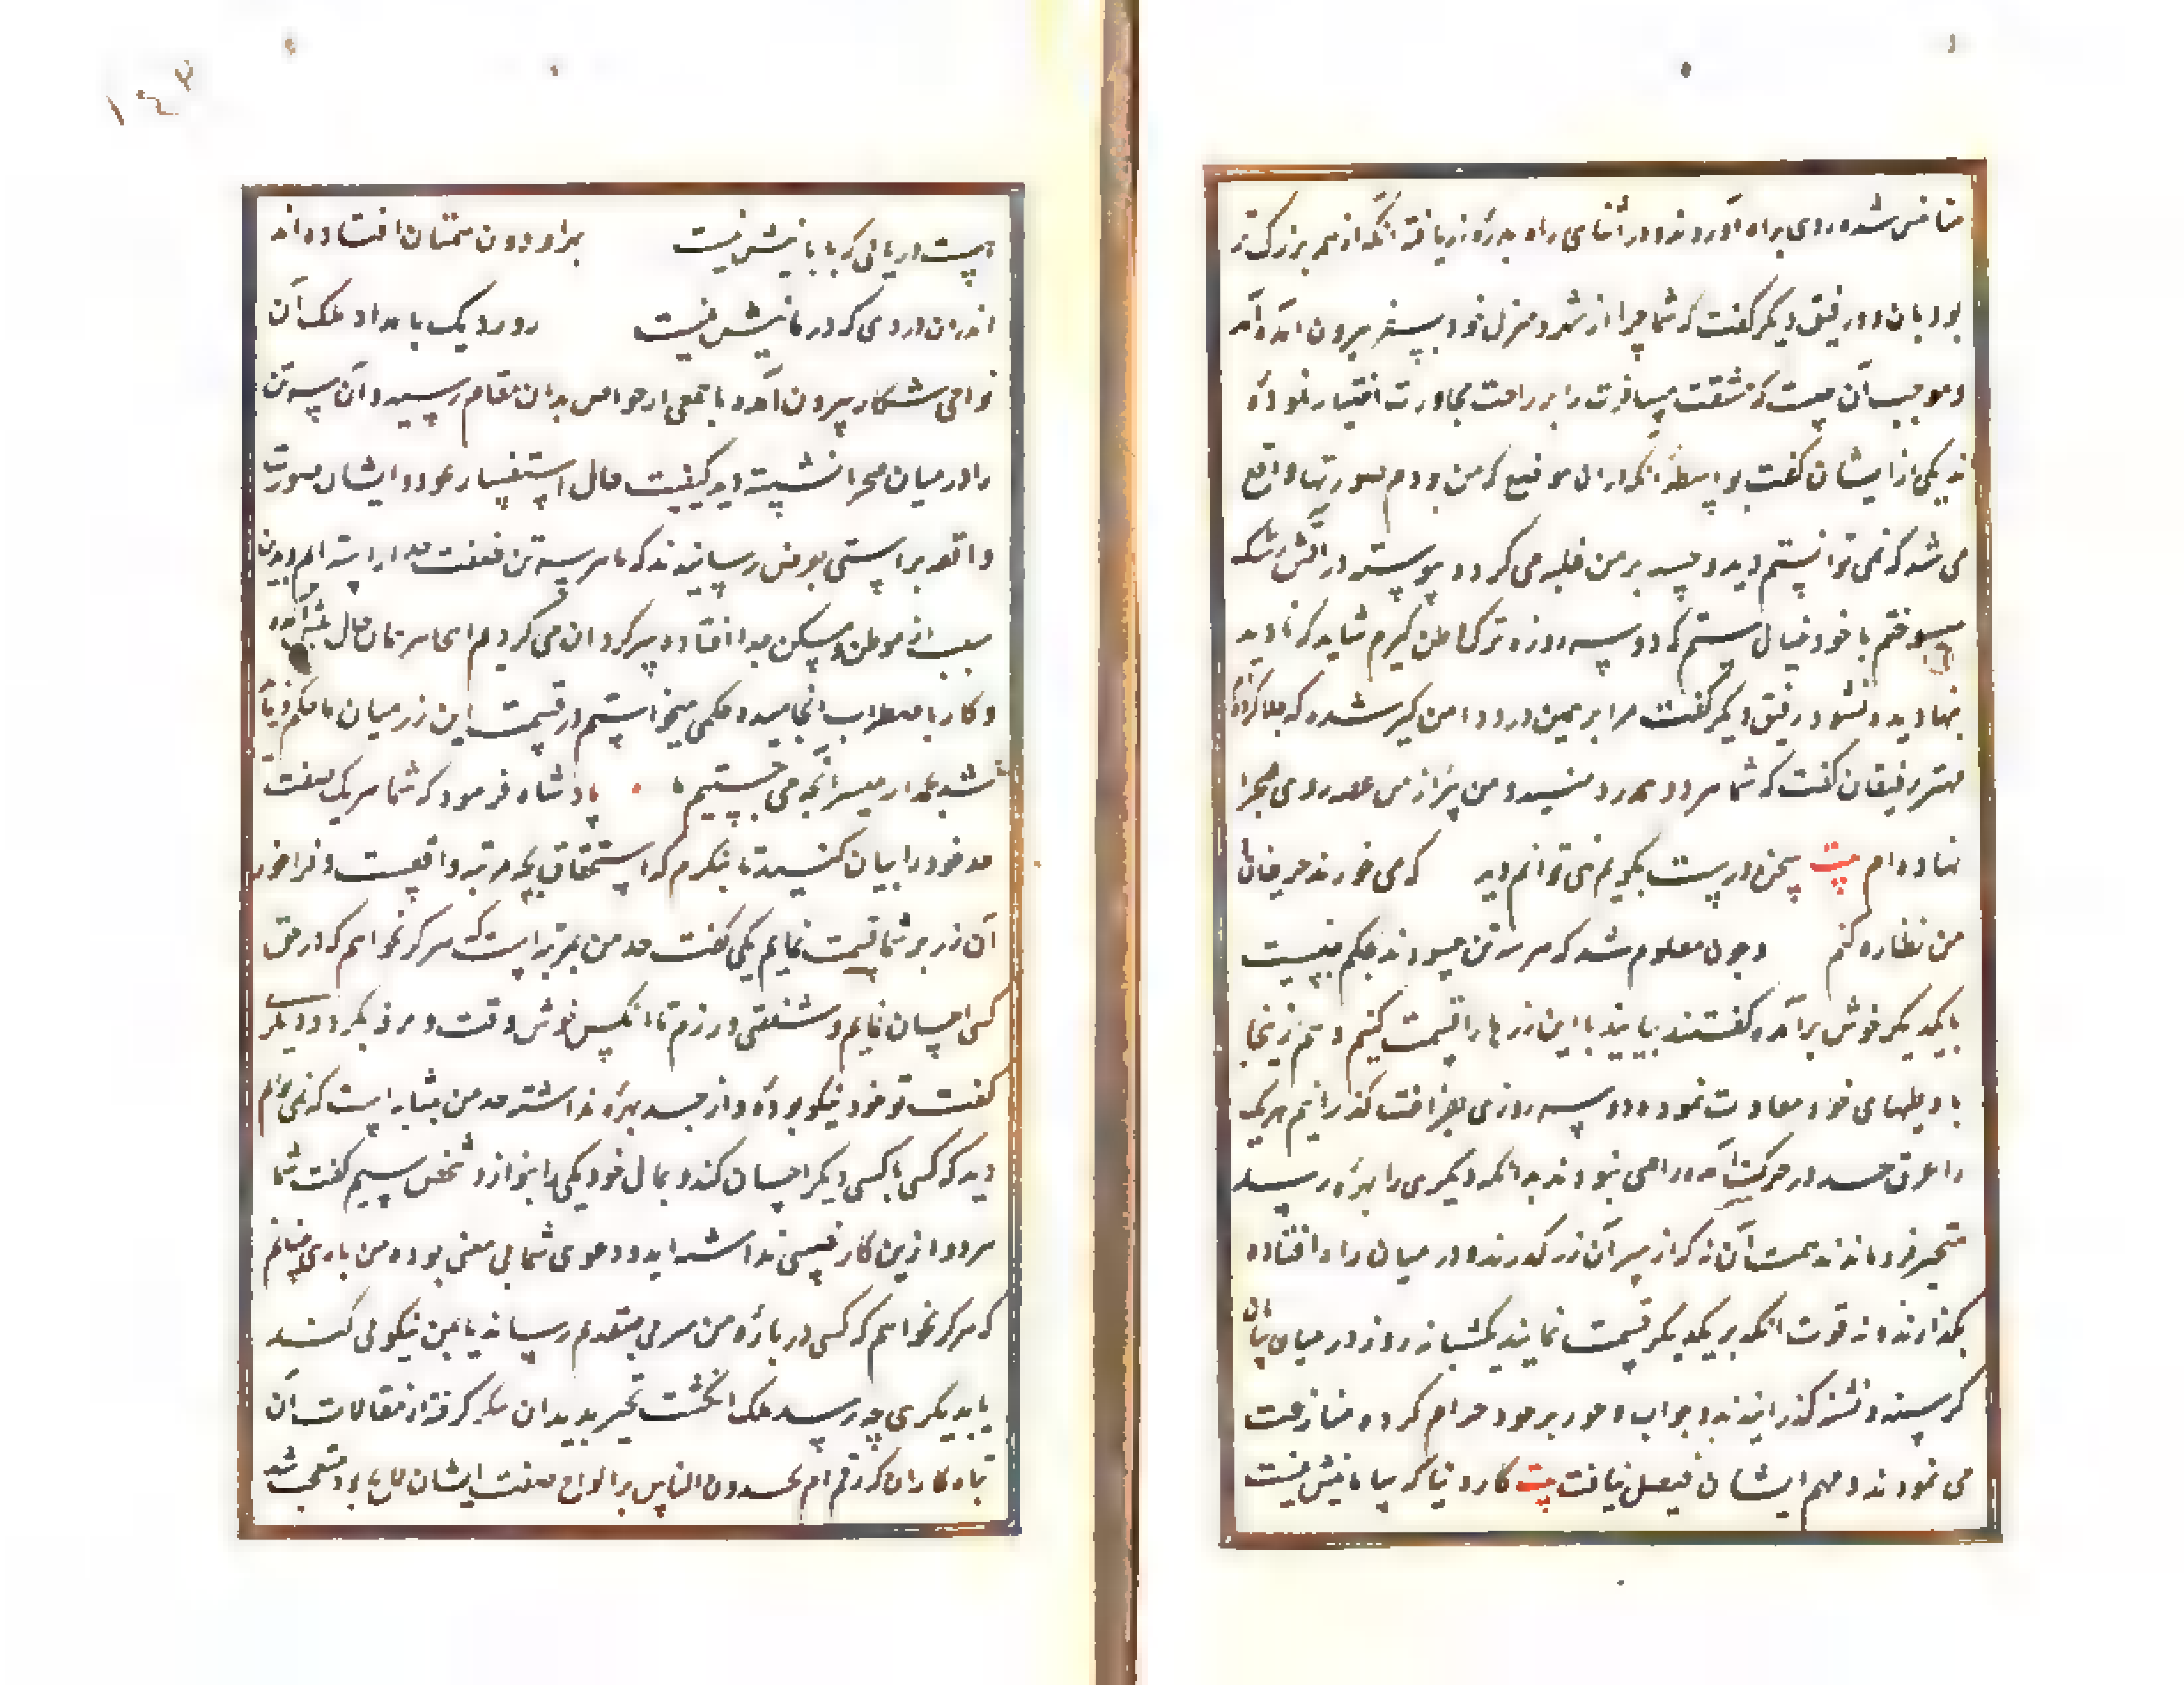 متنافس شده روی براه آوردند و در اثنای راه بدره زر یافتند آنکه از همه بزرگ تر
بود بان دو رفیق دیگر گفت که شما چرا از شهر و منزل خود بسفر بیرون آمده‌اید
و موجب آن چیست که مشقت مسافرت را بر راحت مجاورت اختیار نموده
اند یکی از ایشان گفت بواسطه آنکه دران موضع که من بودم صورتها واقع
می شد که نمی توانستم دید و حسد بر من غلبه می کرد و پیوسته در آتش رشک
میسوختم با خود خیال بستم که دو سه روزه ترک وطن گیرم شاید که نادید
نیها دیده نشود رفیق دیگر گفت مرا نیز همین درد دامن گیر شده که جلا کرده‌ام
مهتر رفیقان گفت که شما هر دو همدرد منید و من نیز از همین غصه روی بصحرا
نهاده ام بیت سخن درست بگویم نمی توانم دید که می خورند حریفان
من نظاره کنم و چون معلوم شد که هر سه تن حسودند بحکم جنسیت
بایکدیگر خوش برآمده گفتند بیایید تا این زرها را قسمت کنیم و هم ازینجا
با وطنهای خود معاودت نموده دو سه روزی بفراغت گذرانیم هریک
را عرق حسد در حرکت آمد و راضی نبودند بدانکه دیگری را بهره رسد
متحیر فرو ماندند نه همت آن که از سر آن زر گذرند و در میان راه افتاده
بگذارند و نه قوت آنکه بر یکدیگر قسمت نمایند یکشبانه روز در میان بیابان
گرسنه و تشنه گذرانیدند و خواب و خور بر خود حرام کرده منازعت
می نمودند و مهم ایشان فیصل نیافت بیت کار دنیا که سامانیش نیست
هست دریائی که پایانیش نیست همراه دون همتان افتاده‌اند
اندران دردی که درمانیش نیست روز دیگر بامداد ملک آن
نواحی بشکار بیرون آمده با جمعی از خواص بدان مقام رسید و آن سه تن
را در میان صحرا نشسته دید کیفیت حال استفسار نمود و ایشان صورت
واقعه براستی بعرض رسانیدند که ما هر سه تن صفت حسد داریم و بدین
سبب از موطن و مسکن جدا افتاده سرگردان می گردیم اینجا همان حال پیش آمده
و کار باضطراب انجامید و حکمی میخواستیم در قسمت این زر میان ما حکم فرماید
شد بحمدالله میسر آنچه می جستیم ما پادشاه فرمود که شما هر یک صفت
حسد خود را بیان کنید تا بنگرم که استحقاق بچه مرتبه واقعست و فراخور
آن زر بر شما قسمت نمایم یکی گفت حسد من بمرتبه ایست که هرگز نخواهم که در حق
کسی احسان نمایم و شفقتی ورزم تا آنکس خوش وقت و مرفه گردد دیگری
گفت تو خود نیکو بوده و از حسد بهره نداشته حسد من بمثابه ایست که نمی توانم
دید که کسی با کسی دیگر احسان کند و بمال خود یکی را بنوازد شخص سیم گفت شما
هر دو ازین کار نصیبی نداشته اید و دعوی شما بی معنی بوده من باری چنانم
که هرگز نخواهم که کسی درباره من مرحمتی بتقدیم رساند یا بمن نیکوئی کند
یا بدیگری چه رسد ملک انگشت تحیر بدندان تفکر گرفته از مقالات آن
تباه کاران که رقم ام یحسدون الناس بر الواح صفت ایشان لایح بود متعجب شد